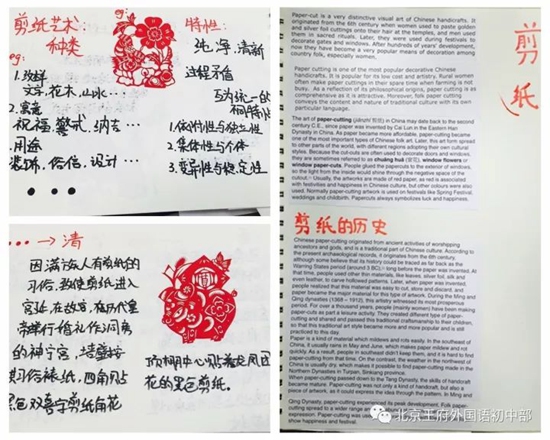 剪纸艺术:
种类
eg:
文字、花木、山水...
2.寓意
祝福、警戒、纳吉...
用途
装饰、俗信、设计...
eg:
特性:
纯、净、清新
过程矛盾
互为统一的
1.依附性与独立性
2.集体性与个体
3.变异性与稳定性
... → 清
因满族人有剪纸的
习俗,故使剪纸进入
宫廷,在故宫,
帝举行婚礼作洞房
的神宁宫,墙壁按
其习俗裱纸,四角贴
黑色双喜字剪纸角花
顶棚中心贴着龙凤团
花的黑色剪纸。
剪纸
Paper-cut is a very distinctive visual art of Chinese handicrafts. It
originated from the 6th century when women used to paste golden
and silver foil cuttings onto their hair at the temples, and men used
them in sacred rituals. Later, they were used during festivals to
decorate gates and windows. After hundreds of years' development,
now they have become a very popular means of decoration among
country folk, especially women.
Paper cutting is one of the most popular decorative Chinese
handicrafts. It is popular for its low cost and artistry. Rural women
often make paper cuttings in their spare time when farming is not
busy. As a reflection of its philosophical origins, paper cutting is as
comprehensive as it is attractive. Moreover, folk paper cutting
conveys the content and nature of traditional culture with its own
particular language.
The art of paper-cutting (jiǎnzhǐ 剪纸) in China may date back to the second
century C.E., since paper was invented by Cai Lun in the Eastern Han
Dynasty in China. As paper became more affordable, paper-cutting became
one of the most important types of Chinese folk art. Later, this art form spread
to other parts of the world, with different regions adopting their own cultural
styles. Because the cut-outs are often used to decorate doors and windows,
they are sometimes referred to as chuāng huā (窗花), window flowers or
window paper-cuts. People glued the papercuts to the exterior of windows,
so the light from the inside would shine through the negative space of the
cutout. Usually, the artworks are made of red paper, as red is associated
with festivities and happiness in Chinese culture, but other colours are also
used. Normally paper-cutting artwork is used on festivals like Spring Festival,
weddings and childbirth. Papercuts always symbolizes luck and happiness.
剪纸的历史
Chinese paper-cutting originated from ancient activities of worshipping
ancestors and gods, and is a traditional part of Chinese culture. According to
the present archaeological records, it originates from the 6th century,
although some believe that its history could be traced as far back as the
Warring States period (around 3 BC), long before the paper was invented. At
that time, people used other thin materials, like leaves, silver foil, silk and
even leather, to carve hollowed patterns. Later, when paper was invented,
people realized that this material was easy to cut, store and discard, and
paper became the major material for this type of artwork. During the Ming and
Qing dynasties (1368 – 1912), this artistry witnessed its most prosperous
period. For over a thousand years, people (mainly women) have been making
paper-cuts as part a leisure activity. They created different type of paper-
cutting and shared and passed this traditional craftsmanship to their children,
so that this traditional art style became more and more popular and is still
practiced to this day.
Paper is a kind of material which mildews and rots easily. In the southeast of
China, it usually rains in May and June, which makes paper mildew and rot
quickly. As a result, people in southeast didn't keep them, and it is hard to
find paper-cutting from that time. On the contrast, the weather in the northwest of
China is usually dry, which makes it possible to find paper-cutting made in the
Northern Dynasties in Turpan, Sinkiang province.
When paper-cutting passed down to the Tang Dynasty, the skills of handcraft
became mature. Paper-cutting was not only a kind of handcraft, but also a
piece of artwork, as it could express the idea through the pattern. In Ming and
Qing Dynasty, paper-cutting experienced its peak development. Folk paper-
cutting spread to a wider range and
expression. Paper-cutting was used
show happiness and festival.
北京王府外国语初中部